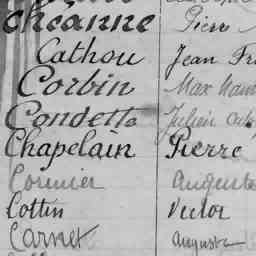 cheanne Pierre
Cathou Jean Fr
Corbin Max
Condette Julien
Chapelain Pierre
Cormier Auguste
Cottin Victor
Carnet Auguste